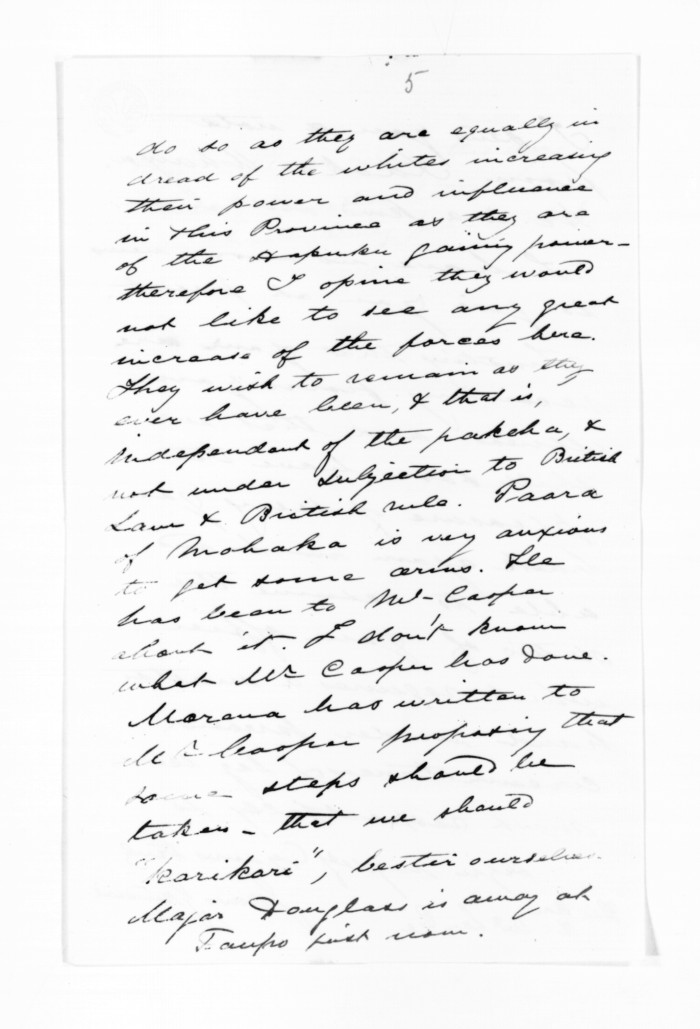 5
do so as they are equally in
dread of the whites increasing
their power and influence
in this Province as they are
of the Hapuku gaining power -
therefore I opine they would
not like to see any great
increase of the forces here.
They wish to remain as they
ever have been, & that is,
independent of the pakeha, &
not under subjection to British
Law & British rule. Paara
of Mohaka is very anxious
to get some arms. He
has been to Mr Cooper
about it. I don't know
what Mr Cooper has done.
Morena has written to
Mr Cooper proposing that
some steps should be
taken - that we should
"Karikari", bestir ourselves.
Major Douglass is away at
Taupo just now.